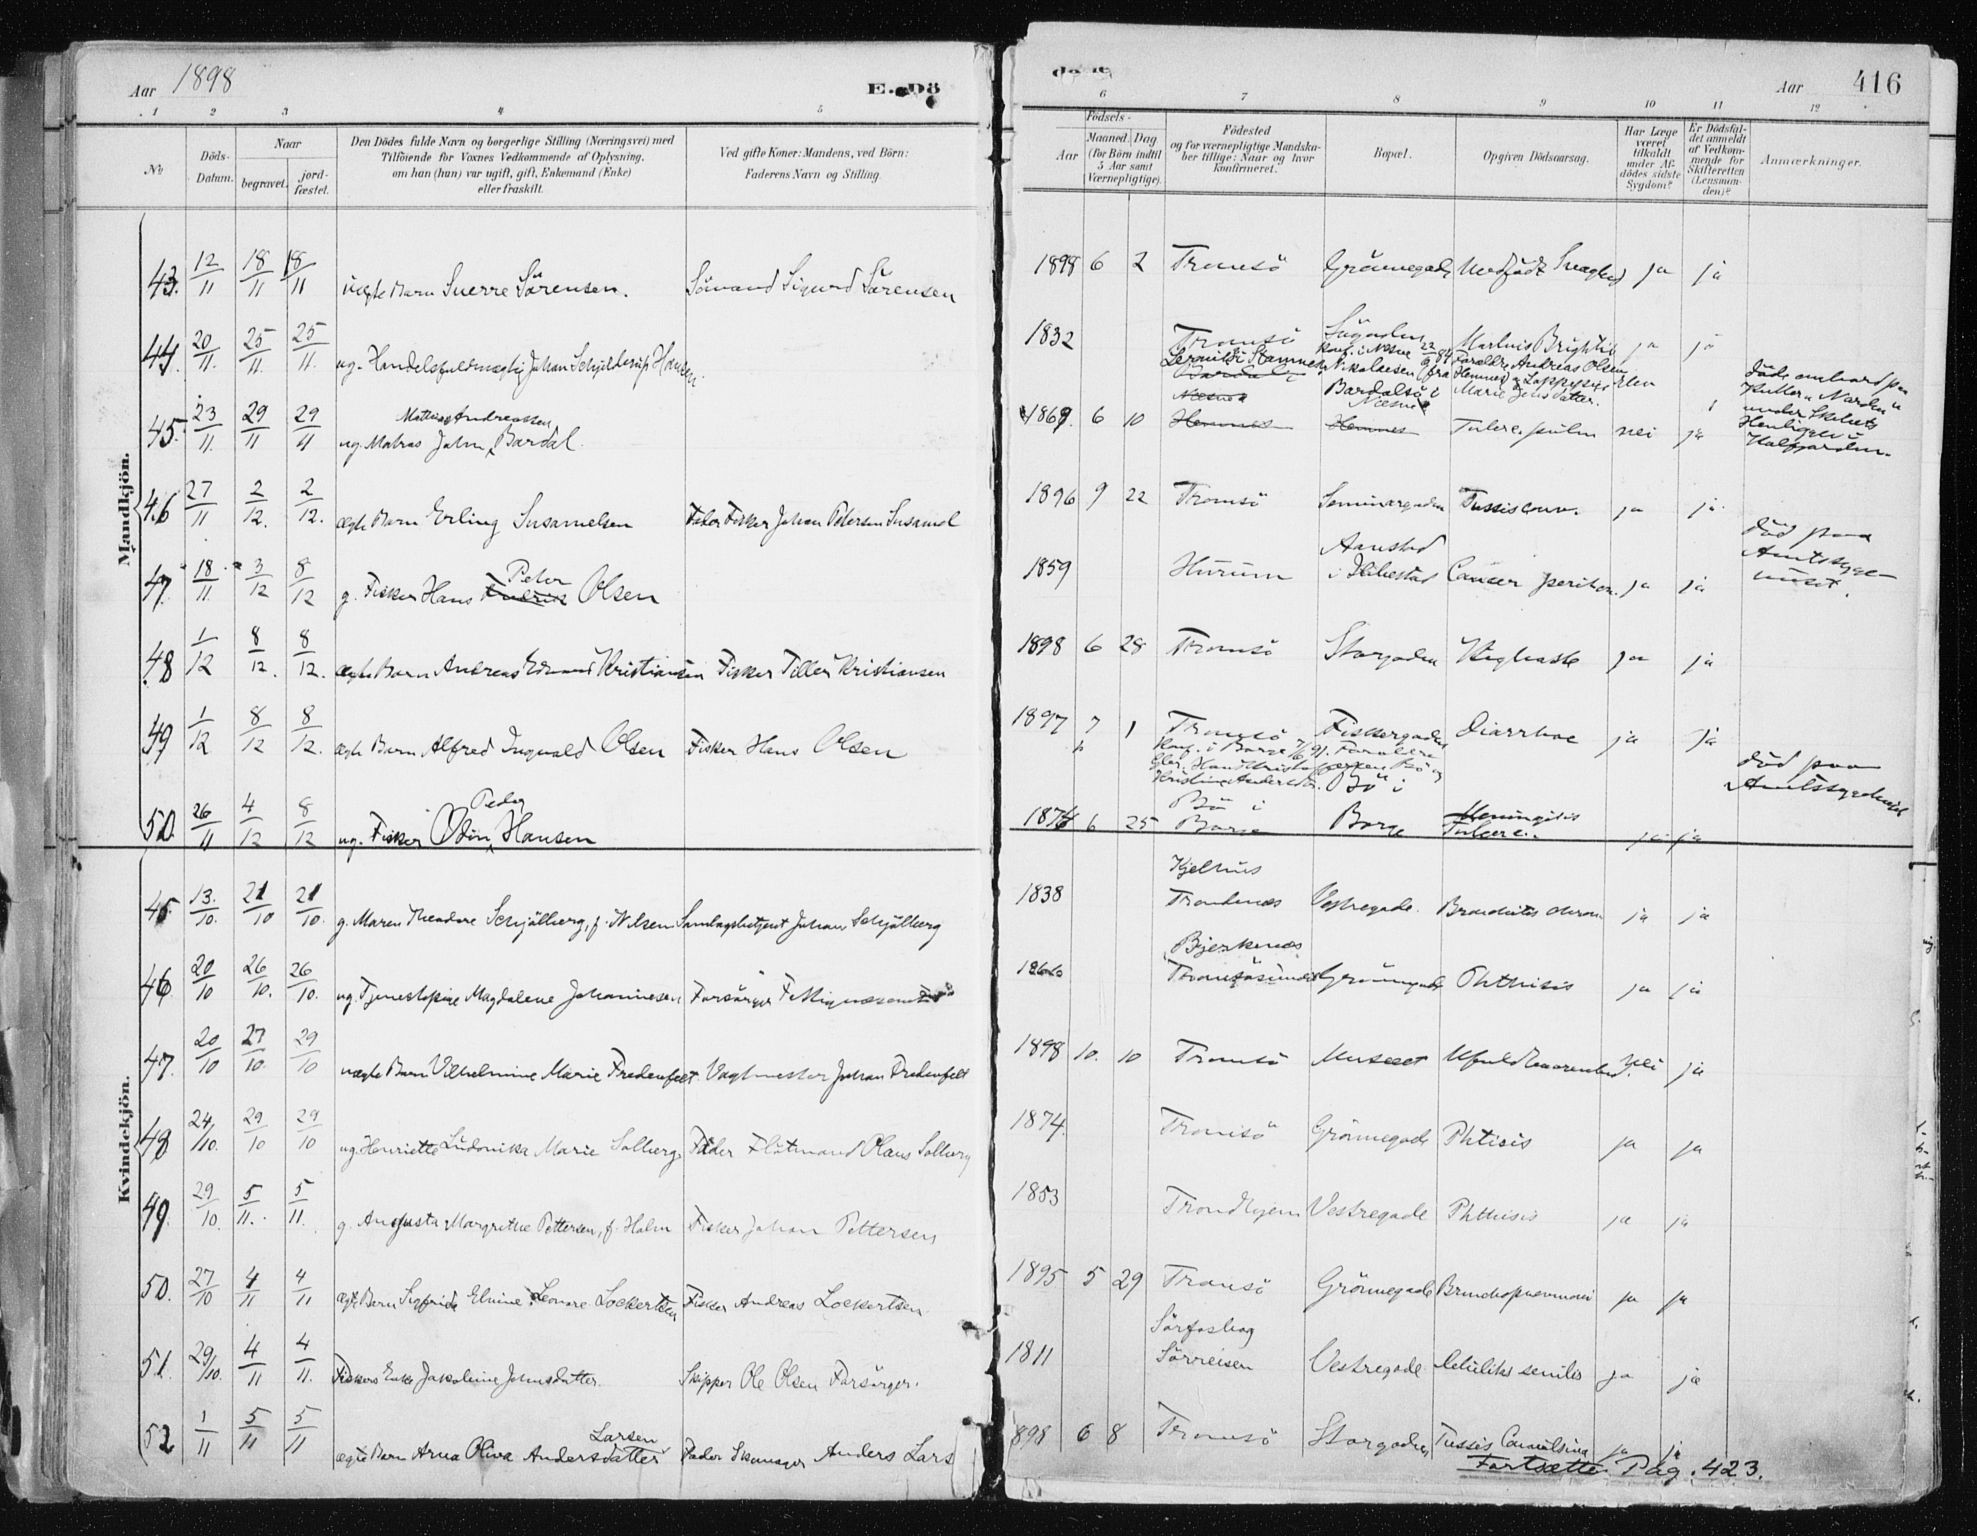 Aar 1898
E. Dö
de
Aar
416
1 2 3 4 5
6 7 8 9 10 11 12
No
Döds-Datum.
Naar
begravet.
jord-fæstet.
Den Dödes fulde Navn og borgerlige Stilling (Næringsvei) med
Tilföiende for Voxnes Vedkommende af Oplysning,
om han (hun) var ugift, gift, Enkemand (Enke)
eller fraskilt.
Ved gifte Koner: Mandens, ved Börn:
Faderens Navn og Stilling.
Födsels-
Aar
Maaned. Dag
(for Börn indtil
5 Aar samt
Værnepligtige).
Födested
og for værnepligtige Mandska-
ber tillige: Naar og hvor
konfirmeret.
Bopæl.
Opgiven Dödsaarsag.
Har Læge
været
tilkaldt
under Af-
dödes sidste
Sygdom?
Er Dödsfal-
det anmeldt
af Vedkom-
mende for
Skifteretten
(Lensman-
den)?
Anmærkninger.
Mandkjön.
43. 12/11 18/11 18/11 uægte Barn Sverre Sörensen. Sömand Sigurd Sörensen 1898 6 2 Tromsö Grönnegade Medfödt Svaghed ja ja
44. 20/11. 25/11. 25/11. ug. Handelsfuldmægtig Johan Schjelderup Hansen. 1832 Tromsö Sögaden Morbus Brightii ja ja
45. 23/11. 29/11 29/11 ug. Matros Johan Mathias Andreassen Bardal. 1869. 6 10 Hemnes Hemnes Tuberc. pulm nei ja
Bardalsö i Næsne
Marie Jensdatter.
döde ombord paa
Kutter "Norden"
under Skibets
Henliggen i
Kalfjorden.
46 27/11 2/12. 2/12. ægte Barn Erling Susamelsen Fader Fisker Johan Petersen Susamel 1896 9 22 Tromsö Seminargaden Tussis conv. ja ja
47. 18/11. 3/12 8/12 g. Fisker Hans Peter Olsen 1859 Hurum Aanstad i Ibbestad Cancer periton. ja ja
död paa
Amtssyge-
huset.
48 1/12 8/12. 8/12. ægte Barn Andreas Edvard Kristiansen Fisker Tiller Kristiansen 1898 6 28 Tromsö Storgaden Kighoste ja ja
49 1/12 8/12 8/12. ægte Barn Alfred Ingvald Olsen Fisker Hans Olsen 1897 7 1 Tromsö Fiskergaden Diarrhoe ja ja
50. 26/11 4/12 8/12 ug. Fisker Odin Peder Hansen 1876 6 25 Bö i Borge Bö i Borge Meningitis Tuberc. ja ja
död paa
Amtssygehuset
Kvindekjön.
45. 13./10. 21/10 21/10. g. Maren Theodore Schjölberg, f. Nilsen Samlagsbetjent Johan Schjölberg 1838 Kjelhus Trondenæs Vestregade. Bronchitis chron ja ja
46. 20/10 26/10. 26/10. ug. Tjenestepige Magdalene Johannesen Forsörger Fattigvæsenet 1866 Bjerkenæs Tromsösundet Grönnegade Phthisis ja ja
47. 20/10 27/10. 29/10 uægte Barn Vilhelmine Marie Fredenfelt. Vagtmester Johan Fredenfelt 1898 10. 10 Tromsö Museet Ufuldbaarenhed. Nei ja
48 24/10. 29/10 29/10 ug. Henriette Ludovika Marie Solberg Fader Flötmand Olaus Solberg 1874. Tromsö Grönnegade Phtisis ja ja
49. 29/10. 5/11. 5/11. g. Augusta Margrethe Pettersen, f. Holm Fisker Johan Pettersen 1853 Trondhjem Vestregade Phthisis ja ja
50. 27/10 4/11 4/11 ægte Barn Sigfrida Elvine Leonore Lockertsen Fisker Andreas Lockertsen. 1895 5 29 Tromsö Grönnegade Bronchopneumoni ja ja
51. 29/10. 4/11 4/11. Fiskers Enke Jakobine Johnsdatter. Skipper Ole Olsen Forsörger. 1811 Sörfosbog Sörreisen Vestregade debilitas senilis ja ja
52 1/11 5/11 5/11 ægte Barn Arna Oliva Andersdatter Larsen Fader Skomager Anders Lars 898 6 8 Tromsö Storgaden Tussis Convulsiva ja ja
Fortsætter Pag. 423.